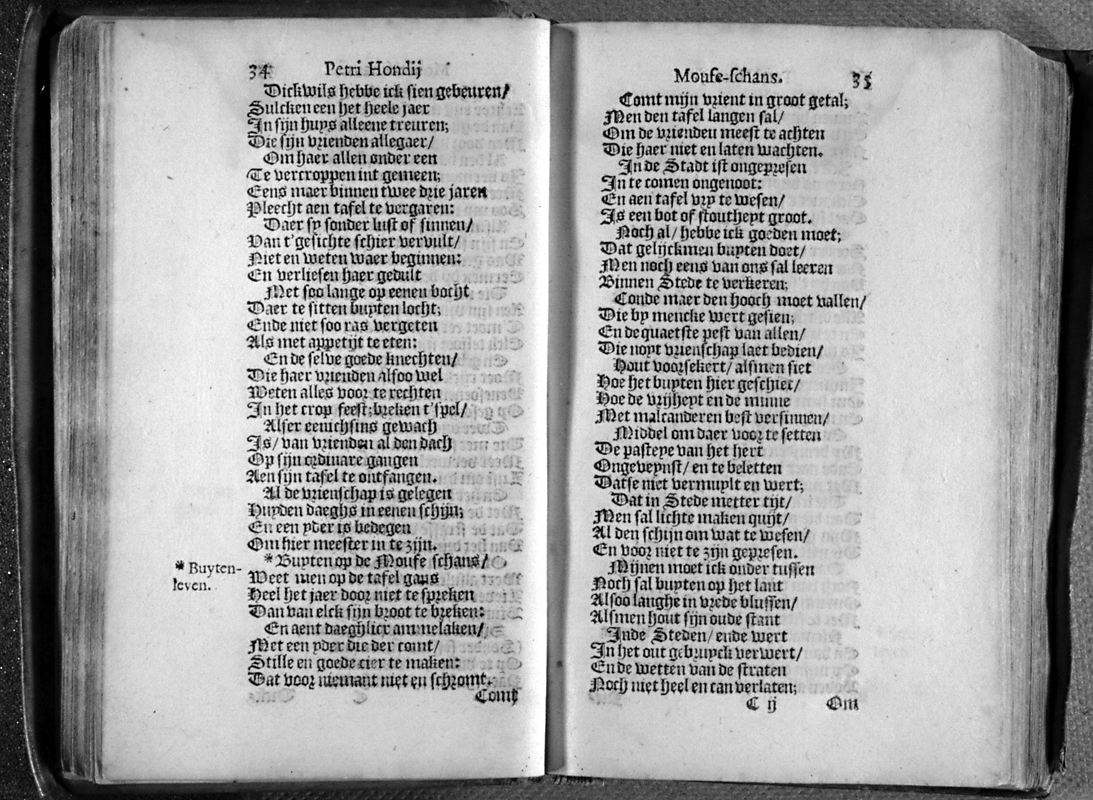 34 Petri Hondij
Dickwils hebbe ick sien gebeuren/
Sulcken een het heele jaer
In sijn huys alleene treuren;
Die sijn vrienden allegaer/
Om haer allen onder een
Te vercroppen int gemeen;
Eens maer binnen twee drie jaren
Pleecht aen tafel te vergaren:
Daer sy sonder lust of sinnen/
Van t'gesichte schier vervult/
Niet en weten waer beginnen:
En verliesen haer gedult
Met soo lange op eenen bocht
Daer te sitten buyten locht;
Ende niet soo ras vergeten
Als met appetijt te eten:
En de selve goede knechten/
Die haer vrienden alsoo wel
Weten alles voor te rechten
In het crop feest; breken t'spel/
Alser eenichsins gewach
Is/ van vrienden al den dach
Op sijn ordinare gangen
Aen sijn tafel te ontfangen.
Al de vrienschap is gelegen
Huyden daeghs in eenen schijn;
En een yder is bedegen
Om hier meester in te zijn.
* Buyten-
leven.
* Buyten op de Moufe schans/
Weet men op de tafel gans
Heel het jaer door niet te spreken
Dan van elck sijn broot te breken:
En aent daeghlicx ammelaken/
Met een yder die der comt/
Stille en goede cier te maken:
Dat voor niemant niet en schromt.
Comt
Moufe-schans. 35
Comt mijn vrient in groot getal;
Men den tafel langen sal/
Om de vrienden meest te achten
Die haer niet en laten wachten.
In de Stadt ist ongepresen
In te comen ongenoot:
En aen tafel vry te wesen/
Is een bot of stoutheyt groot.
Noch al/ hebbe ick goeden moet;
Dat gelijckmen buyten doet/
Men noch eens van ons sal leeren
Binnen Stede te verkeren;
Conde maer den hooch moet vallen/
Die by mencke wert gesien;
En de quaetste pest van allen/
Die noyt vrienschap laet bedien/
Hout voorsekert/ alsmen siet
Hoe het buyten hier geschiet/
Hoe de vrijheyt en de minne
Met malcanderen best versinnen/
Middel om daer voor te setten
De pasteye van het hert
Ongeveynst/ en te beletten
Datse niet vermuylt en wert;
Dat in Stede metter tijt/
Men sal lichte maken quijt/
Al den schijn om wat te wesen/
En voor niet te zijn gepresen.
Mijnen moet ick onder tussen
Noch sal buyten op het lant
Alsoo langhe in vrede blussen/
Alsmen hout sijn oude stant
Inde Steden/ ende wert
In het out gebruyck verwert/
En de wetten van de straten
Noch niet heel en can verlaten;
C ij Om